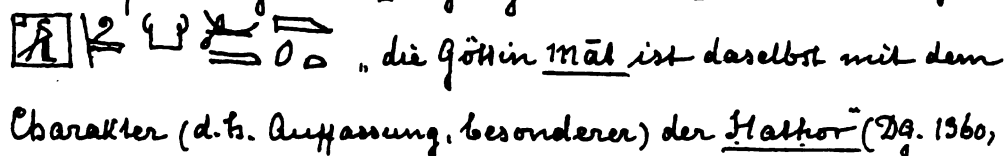 „die Göttin Māt ist daselbst mit dem
Charakter (d.h. Auffassung, besonderer) der Hathor“ (Dg. 1360,